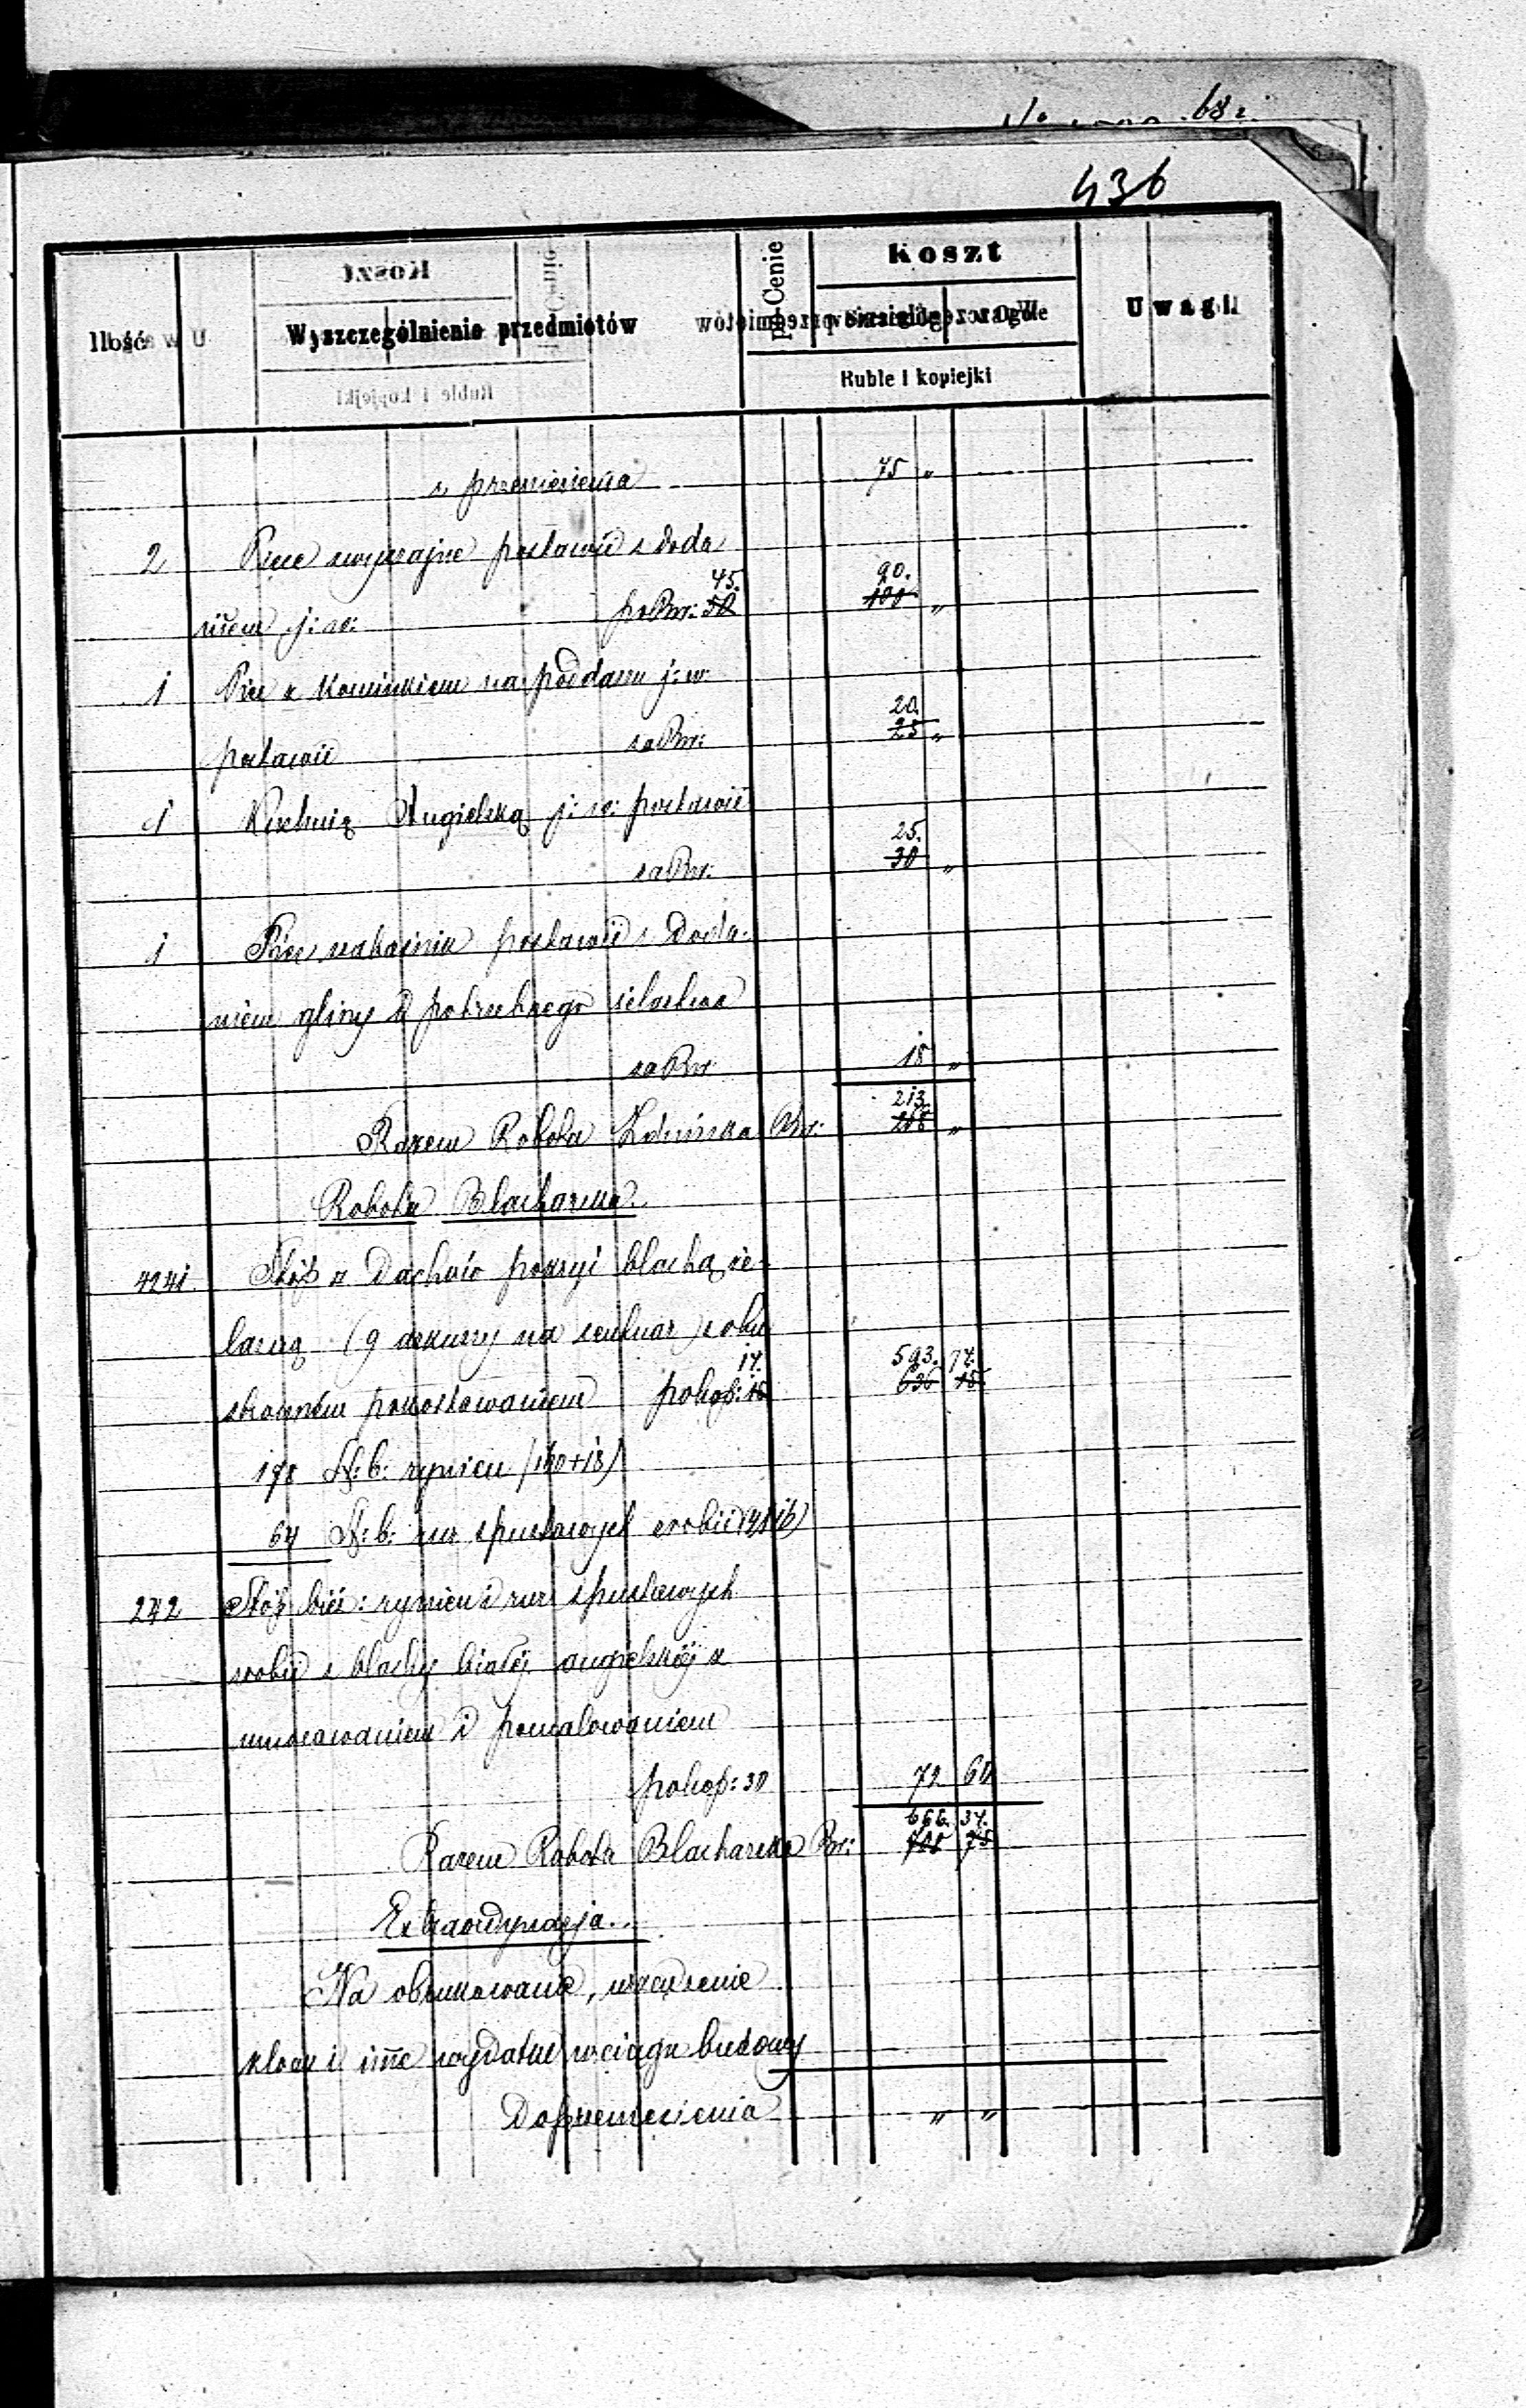 436
Ilość
Wyszczególnienie przedmiotów
po Cenie
Koszt
Uwagi
Ruble i kopiejki
z przeniesienia 75 "
2 Piece zwyczajne postawić z doda
niem j: w: po Rsr: 50 45. 100 90. "
1 Piec z Kominkiem na poddaszu j: w:
postawić za Rsr: 25 20. "
1 Kuchnię Angielską j: w: postawić
za Rsr: 30 25. "
1 Piec postawić z doda-
niem gliny i potrzebnego żelastwa
za Rsr: 18 "
Razem Robota Zduńska Rsr: 213. "
Robota Blacharska.
4241. Stóp □ Dachów pokryć blachą że-
lazną (9 arkuszy na centnar) z obu
stronném pokostowaniem po kop: 15 14. 636 15 593. 74.
178 St: b: rynien (160+18)
64 St: b: rur spustowych zrobić
242 Stóp bież: rynien i rur spustowych
zrobić z blachy białéj angielskiéj z
umocowaniem i pomalowaniem
po kop: 30 72 60
Razem Robota Blacharska Rsr: 708 75 666. 34.
Extraordynacja.
Na obrukowanie, urządzenie
kloak i inne wydatki w ciągu budowy
Do przeniesienia " "